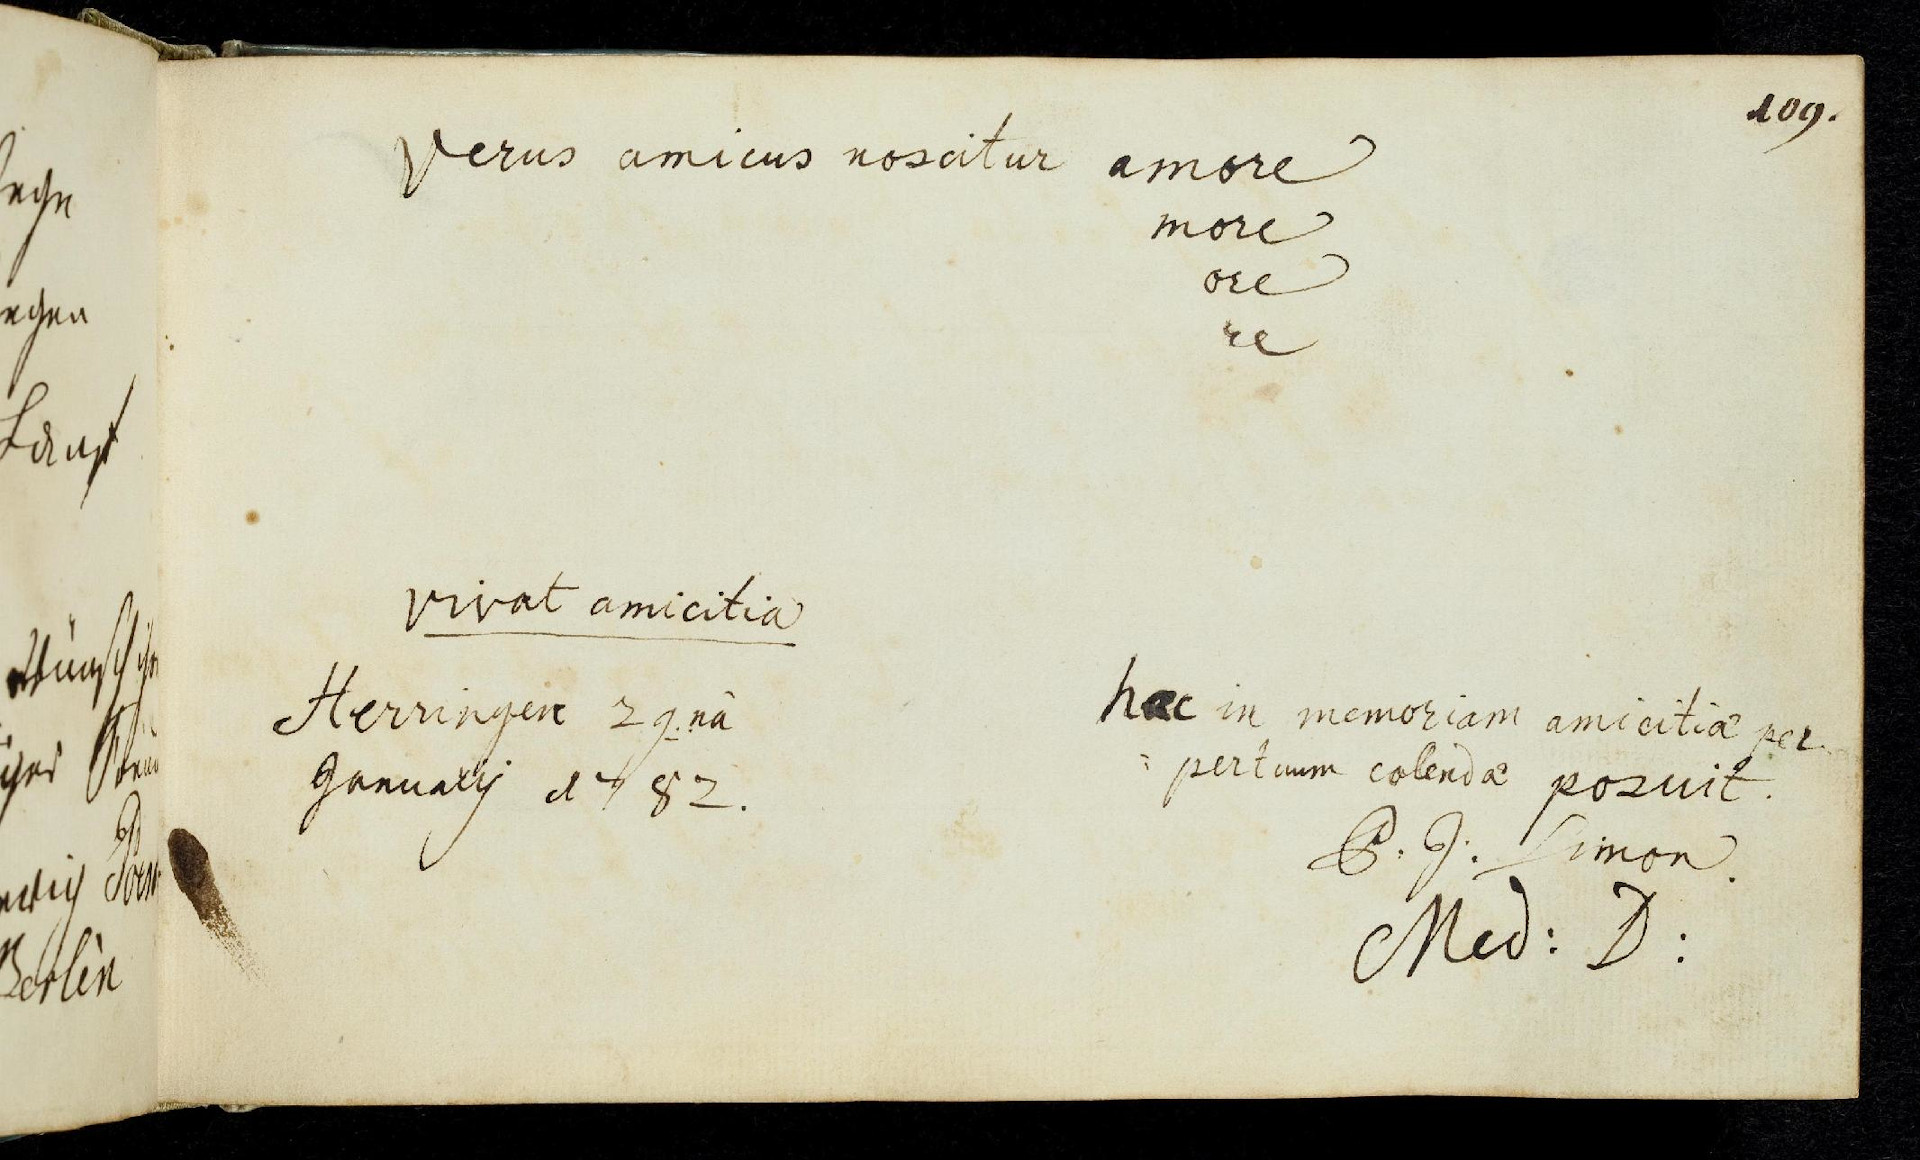 109.
Verus amicus noscitur amore
more
ore
re
vivat amicitia
Herringen 29.nâ
Januarij 1782.
hæc in memoriam amicitiæ per-
pertuum colendæ posuit.
P. J. Simon.
Med: D:
ngen
Berlin